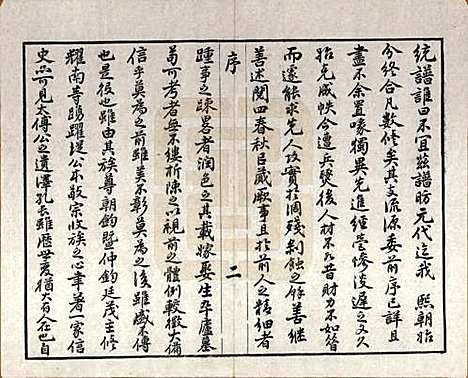 統譜誰曰不宜茲譜昉元代迄我 熙朝始
分終合凡數修矣其支流源委前序已詳且
盡不余置喙獨異先進經營慘淡遲之又久
始克成帙今遭兵燹後人材不如昔財力不如昔
而遂能求先人攻實於凋殘剝蝕之餘善繼
善述閱四春秋臣蕆厥事且於前人之精細者
序
二
踵事之踈畧者潤色之其載嫁娶生卒廬墓
苟可考者無不縷析陳之以視前之體例較徵大備
信乎莫為之前雖美不彰莫為之後雖盛不傳
也是役也雖由其族尊朝鈞暨仲鈞廷茂主修
耀南等踴躍從公本敬宗收族之心聿著一家信
史亦可見太傅公之遺澤孔長雖歷世叐猶大有人在也自